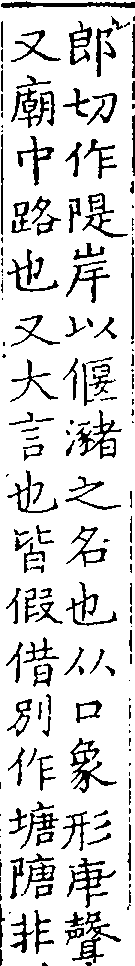 郎切作隄岸以偃瀦之名也从口象形庚聲
又廟中路也又大言也皆假借別作塘隚非